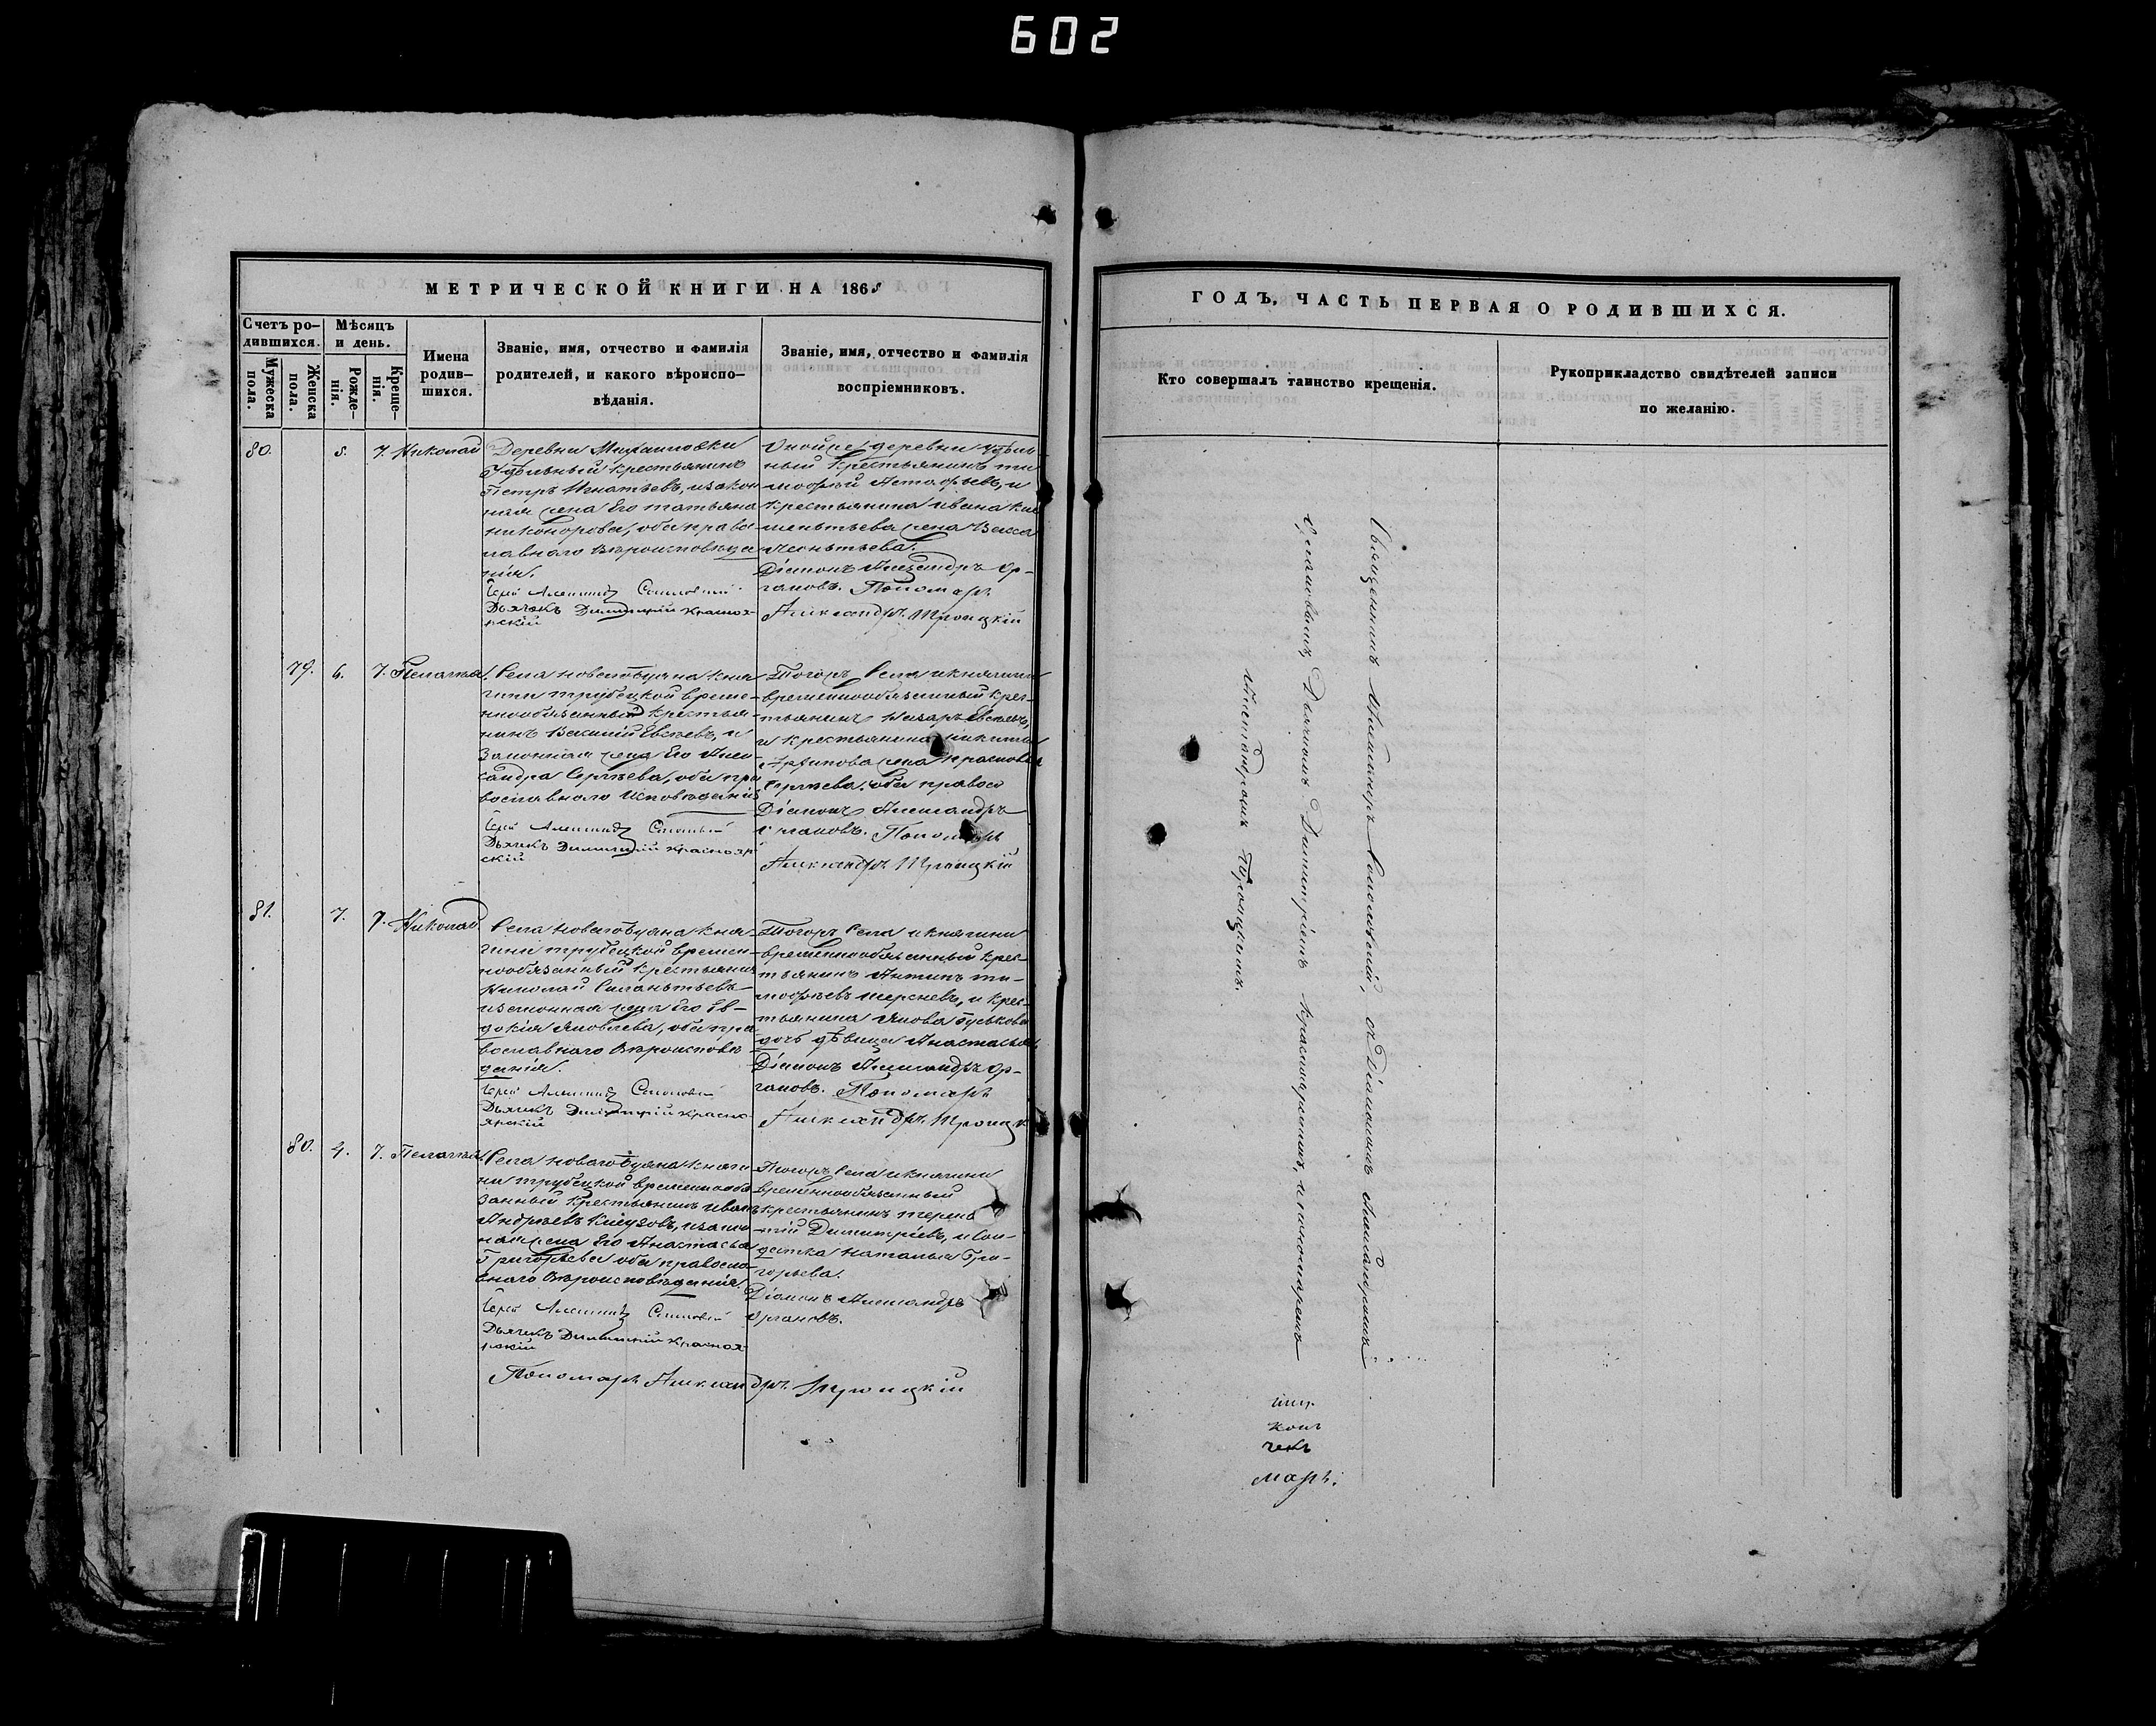 602
МЕТРИЧЕСКОЙ КНИГИ НА 1865
Счетъ ро-
дившихся.
Мужеска
пола.
Женска
пола.
Мѣсяцъ
и день.
Рожде-
нія.
Креще-
нія.
Имена
родив-
шихся.
Званіе, имя, отчество и фамилія
родителей, и какого вѣроиспо-
вѣданія.
Званіе, имя, отчество и фамилія
воспріемниковъ.
80. 5. 7. Николай
Деревни Михаиловки
Удѣльный крестьянинъ
Петръ Игнатьевъ, и закон
ная жена Его татьяна
никонорова, оба право
славнаго вѣроисповѣда
нія.
Іерей
Дьячекъ Димитрій Краснояр-
скій
Оной же деревни удѣль
ный крестьянинъ ти
мофѣй Астафьевъ, и
крестьянина ивана
жена
Діаконъ Александръ Ор-
гановъ. Пономарь
Александръ Троицкій
79. 6. 7. Пелагія
Села новаготуяна кня
гини трубецкой време-
ннообязанный крестья-
нинъ Василій Евсѣевъ, и
Законная жена Его Алек
сандра Сергѣева, оба пра
вославнаго исповѣданія
Іерей
Дьячекъ Димитрій Краснояр
скій
Тогожъ Села и княгини
временнообязанный крес-
тьянинъ Назаръ Евсѣевъ,
и крестьянина никиты
жена
Сергѣева, оба правосл
Діаконъ Александръ
Органовъ. Пономарь
Александръ Троицкій
81. 7. 7. Николай
Села новаготуяна кня-
гини трубецкой времен-
нообязанный крестьянинъ
Николай Силантьевъ
и законная жена Его Ев-
докія Яковлева, оба пра
вославнаго вѣроисповѣ
данія.
Іерей
Дьячекъ Димитрій Красно-
ярскій
Тогожъ Села и княгини
временнообязанный крес
тьянинъ Антипъ ти-
мофѣевъ и крес-
тьянина Якова
дочь дѣвица Анастасья
Діаконъ Александръ Ор-
гановъ. Пономарь
Александръ Троицк
80. 4. 7. Пелагія
Села новаготуяна княги
ни трубецкой временнообя
занный крестьянинъ иванъ
Андреевъ и закон
ная жена Его Анастасья
Григорьева оба правосла
внаго вѣроисповѣданія
Іерей
Дьячекъ Димитрій Краснояр
скій
Тогожъ Села и княгини
временнообязанный
крестьянинъ терен
тій Димитріевъ, и Сол-
датка наталья Гри-
горьева.
Діаконъ Александръ
Органовъ.
Пономарь Александръ Троицкій
ГОДЪ, ЧАСТЬ ПЕРВАЯ О РОДИВШИХСЯ.
Кто совершалъ таинство крещенія.
Рукоприкладство свидѣтелей записи
по желанію.
Священникъ съ Діакономъ Александромъ
Органовымъ, Дьячкомъ Димитріемъ Красноярскимъ, и пономаремъ
Александромъ Троицкимъ.
конъ
чекъ
марь.